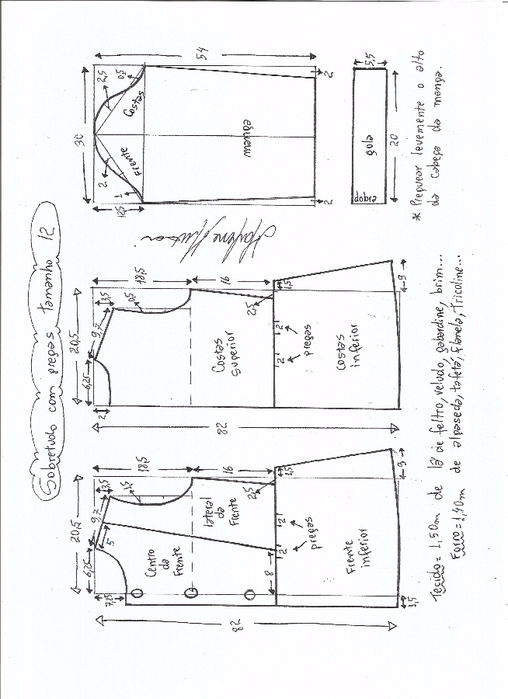 Sobretudo com pregas tamanho 12
20,5
6,25
9,7
3,5
7,25
5
1,5
18,5
16
2,5
Centro da Frente
lateral da Frente
8
2
2
pregas
1,5
82
Frente inferior
9
1,5
20,5
6,25
9,7
3,5
2
0,5
18,5
16
2,5
Costas superior
2
2
pregas
1,5
82
Costas inferior
9
30
54
12,5
2
1
2,5
0,5
Frente
Costas
manga
2
2
5,5
dobra
gola
20
* Prequear levemente o alto
da cabeça da manga.
Tecido = 1,50m de lã de feltro, veludo, gabardine, brim...
Forro = 1,40m de alpaseda, tafetá, flanela, Tricoline...